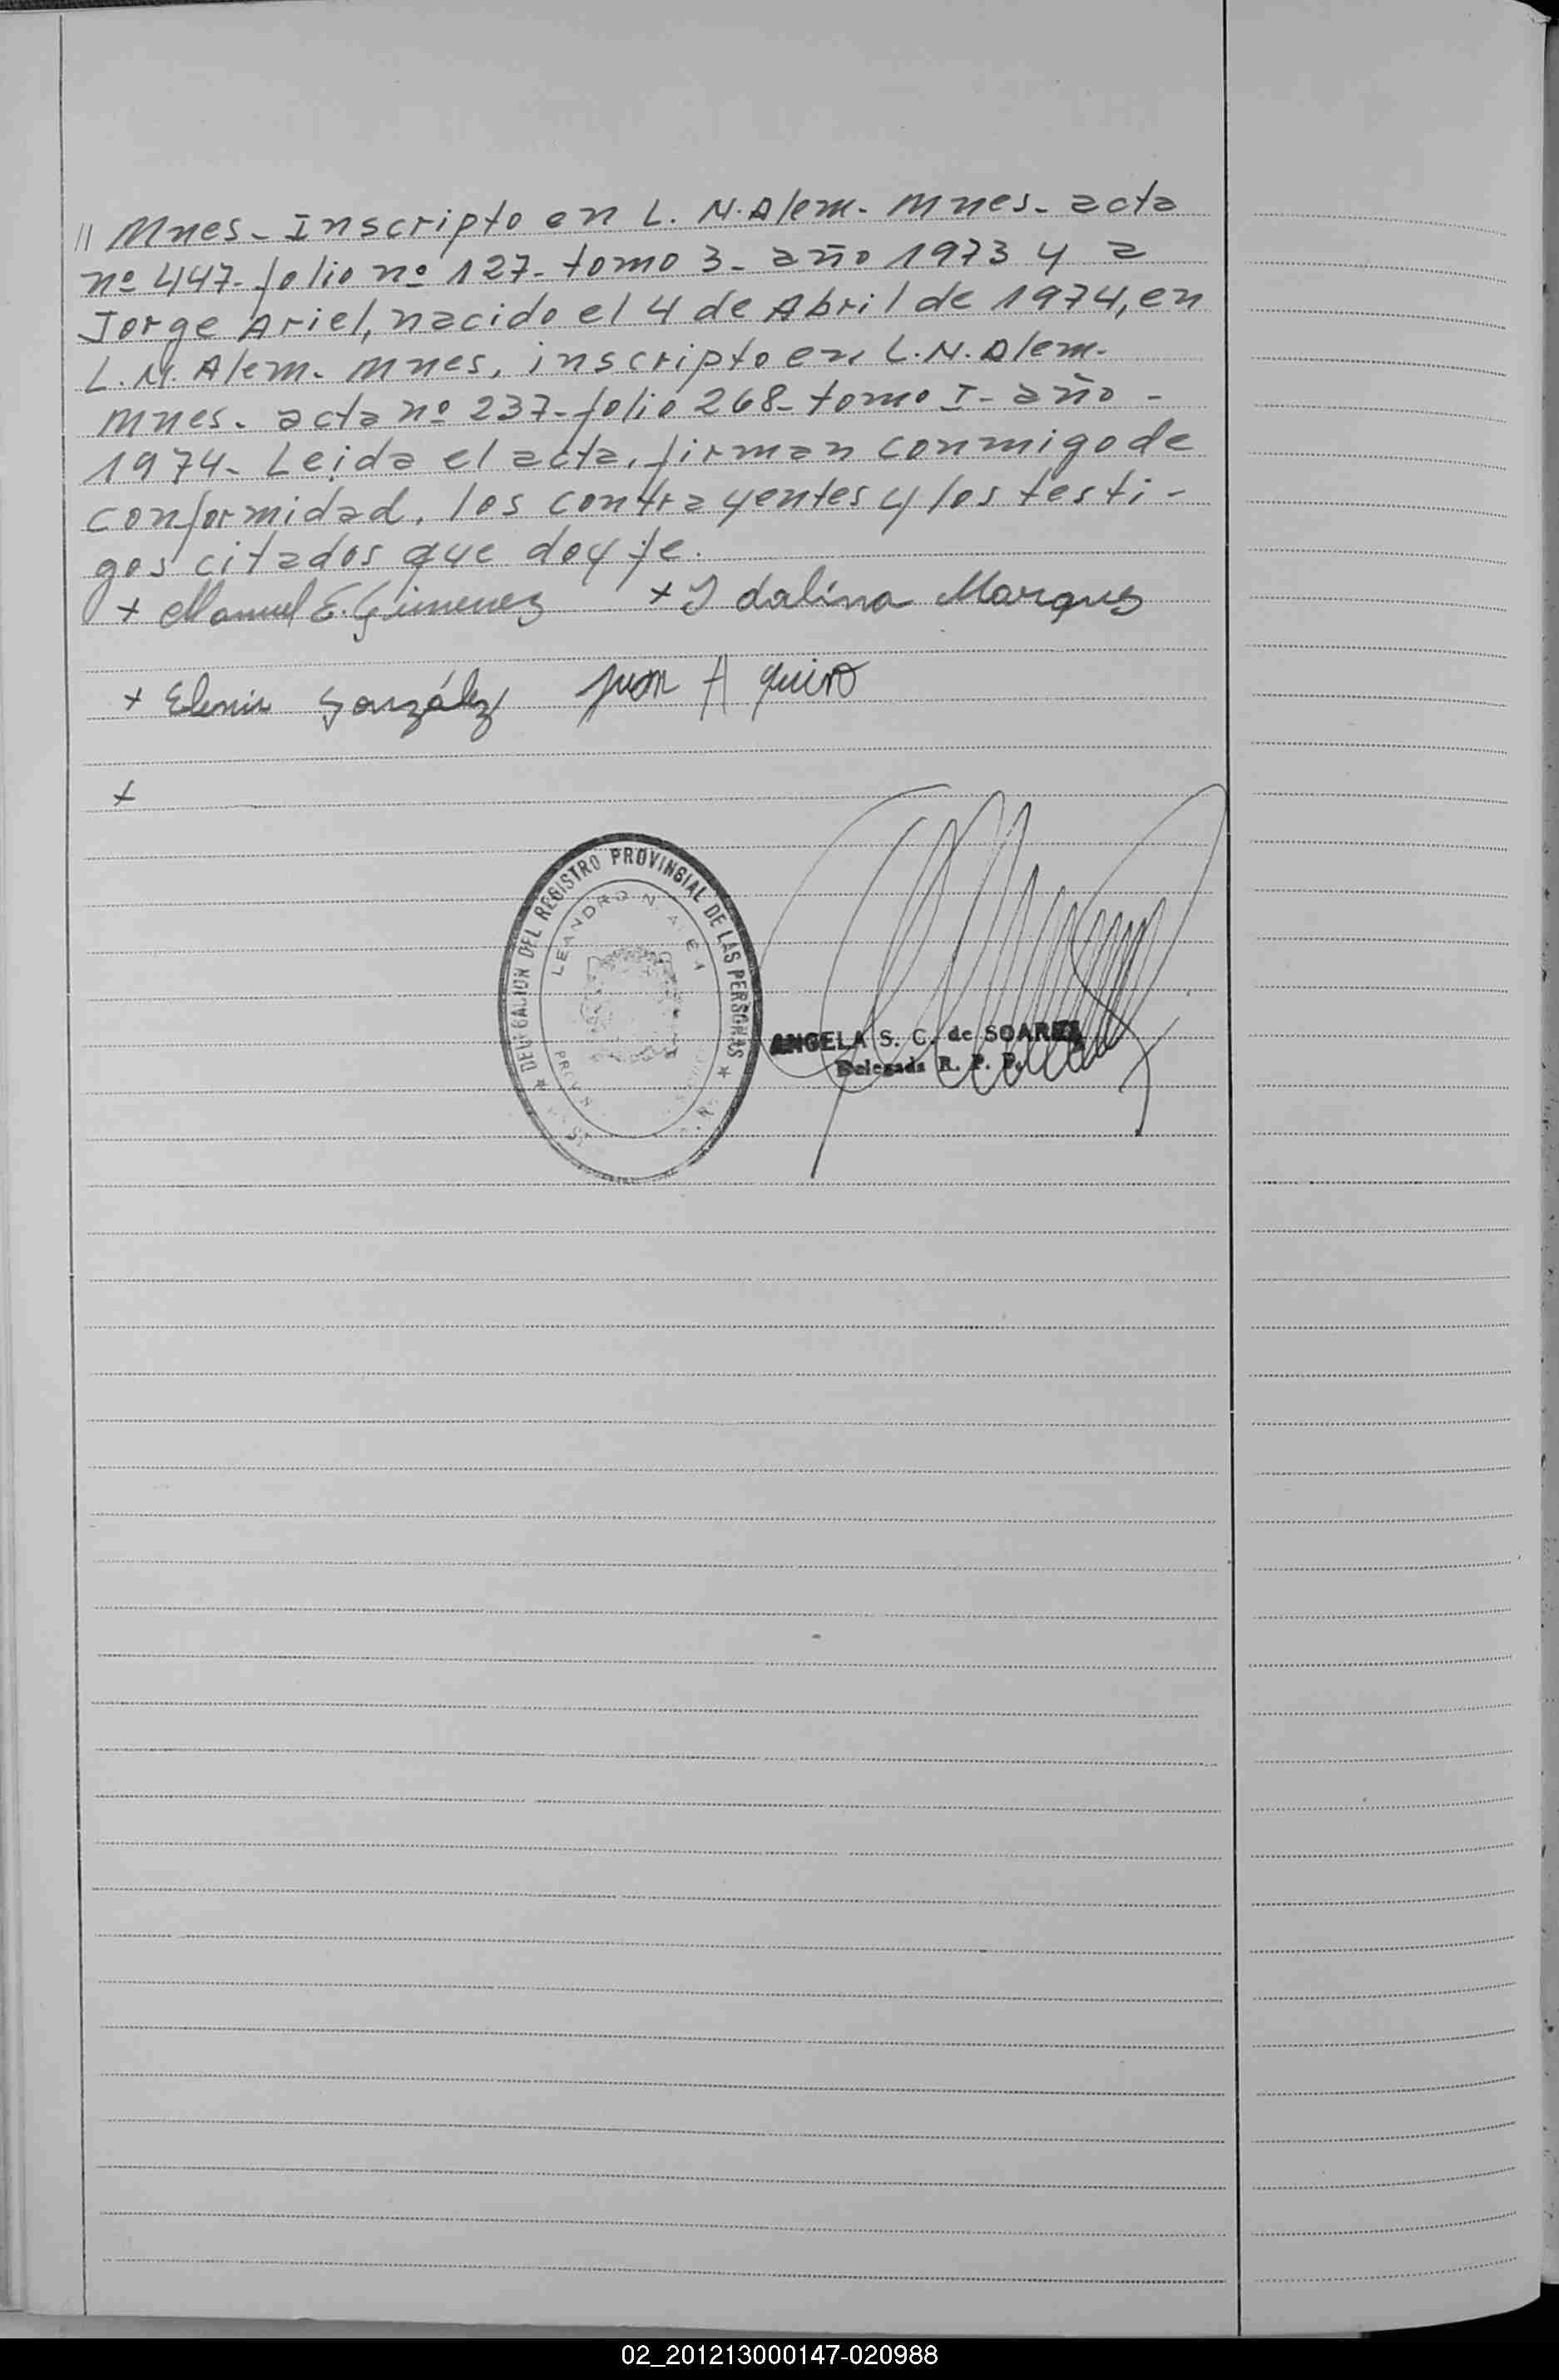 // Mnes- Inscripto en L. N. Alem- Mnes- acta
nº 447- folio nº 127- tomo 3- año 1973 y a
Jorge Ariel, nacido el 4 de Abril de 1974, en
L.N. Alem- Mnes, inscripto en L.N. Alem-
Mnes- acta nº 237- folio 268- tomo I- año -
1974- Leida el acta, firman conmigo de
conformidad, los contrayentes y los testi-
gos citados que doy fe.
+ Manuel E. Gimenez + Idalina Marques
+ Elenir González Juan A
+
DELEGACION DEL REGISTRO PROVINCIAL DE LAS PERSONAS
LEANDRO N. ALEM
ANGELA S. C. de SOAREZ
Delegada R. P. P.
02_201213000147-020988